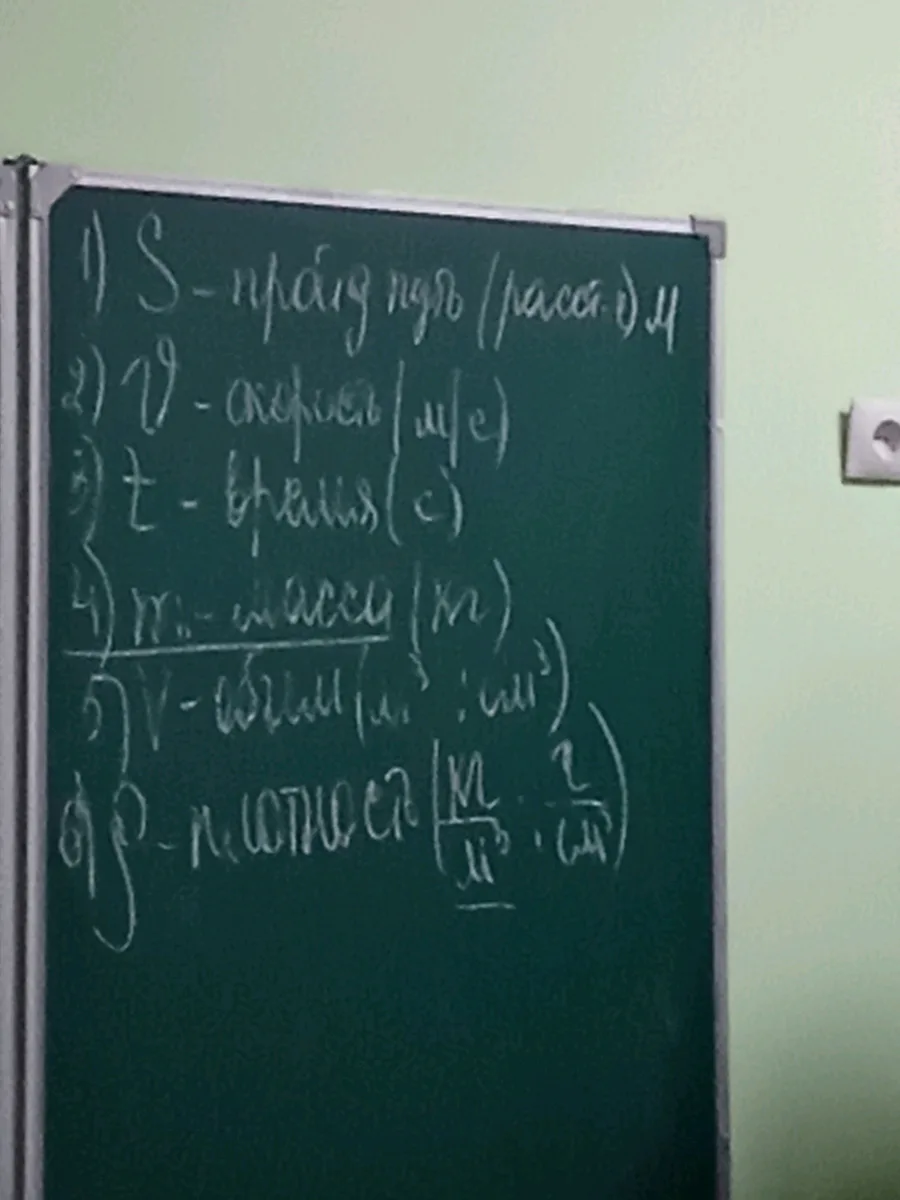 1) S - пройд путь (расст.) м
2) v - скорость (м/с)
3) t - время (с)
4) m - масса (кг)
5) V - объём (м³ ; см³)
6) ρ - плотность (кг/м³ ; г/см³)